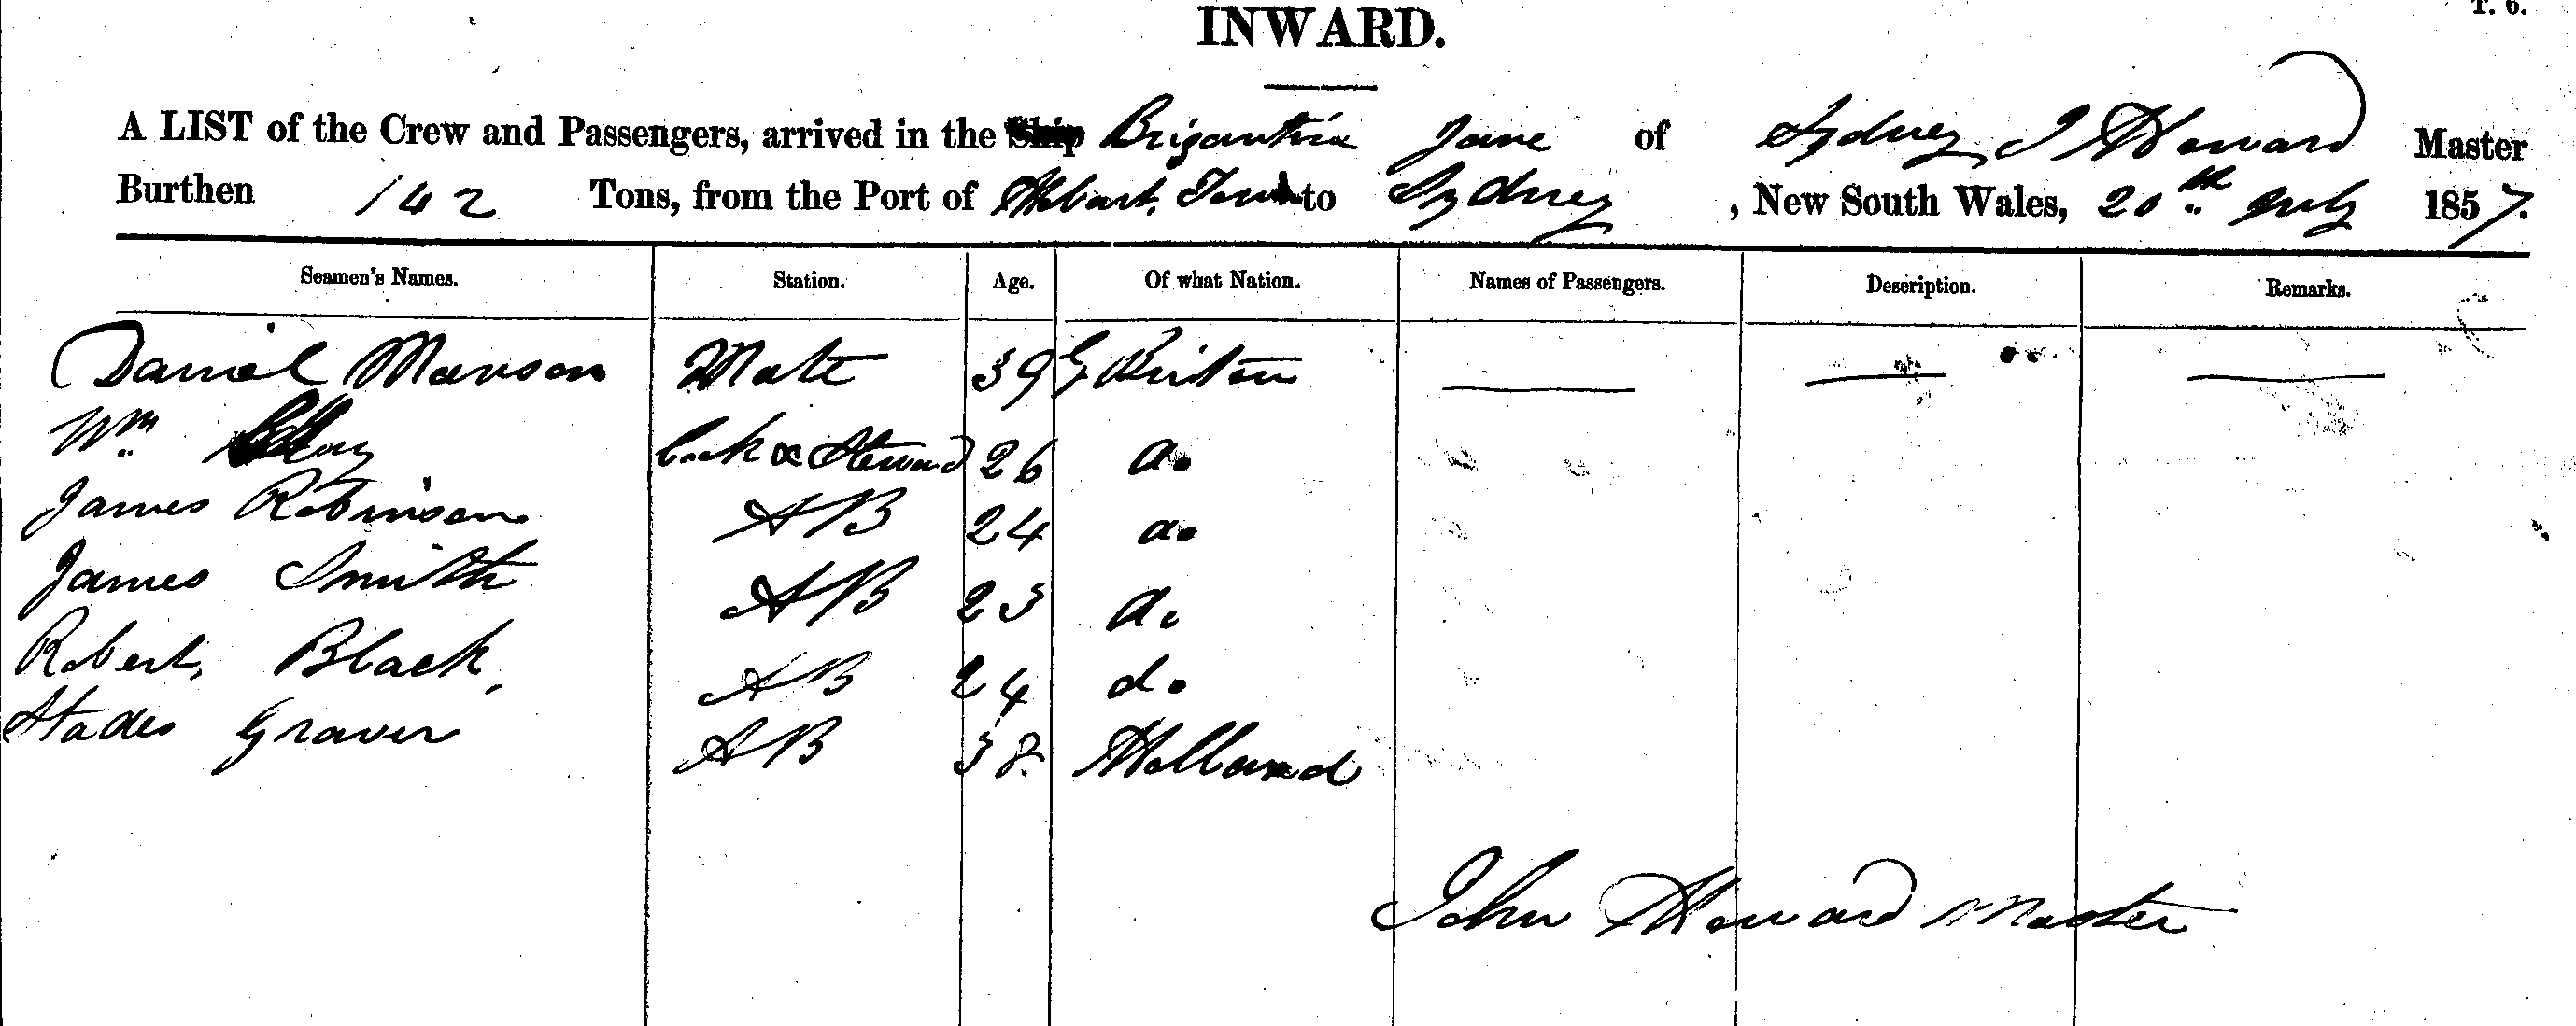 T. 6.
INWARD.
A LIST of the Crew and Passengers, arrived in the Ship Brigantine Jane of Sydney J Howard Master
Burthen 142 Tons, from the Port of Hobart Town to Sydney, New South Wales, 20th July 1857.
Seamen's Names. Station. Age. Of what Nation. Names of Passengers. Description. Remarks.
Daniel Manson Mate 39 G Britain
Wm Cook & Steward 26 do
James Robinson AB 24 do
James Smith AB 23 do
Robert Black AB 24 do
Stades Graver AB 38 Holland
John Howard Master